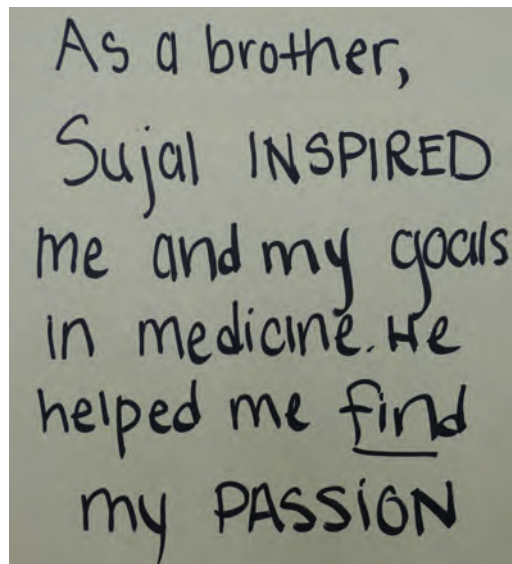 As a brother,
Sujal INSPIRED
me and my goals
in medicine. He
helped me find
my PASSION